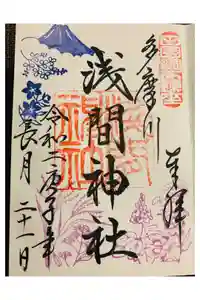 奉拝
多摩川
浅間神社
令和二庚子年
長月二十一日